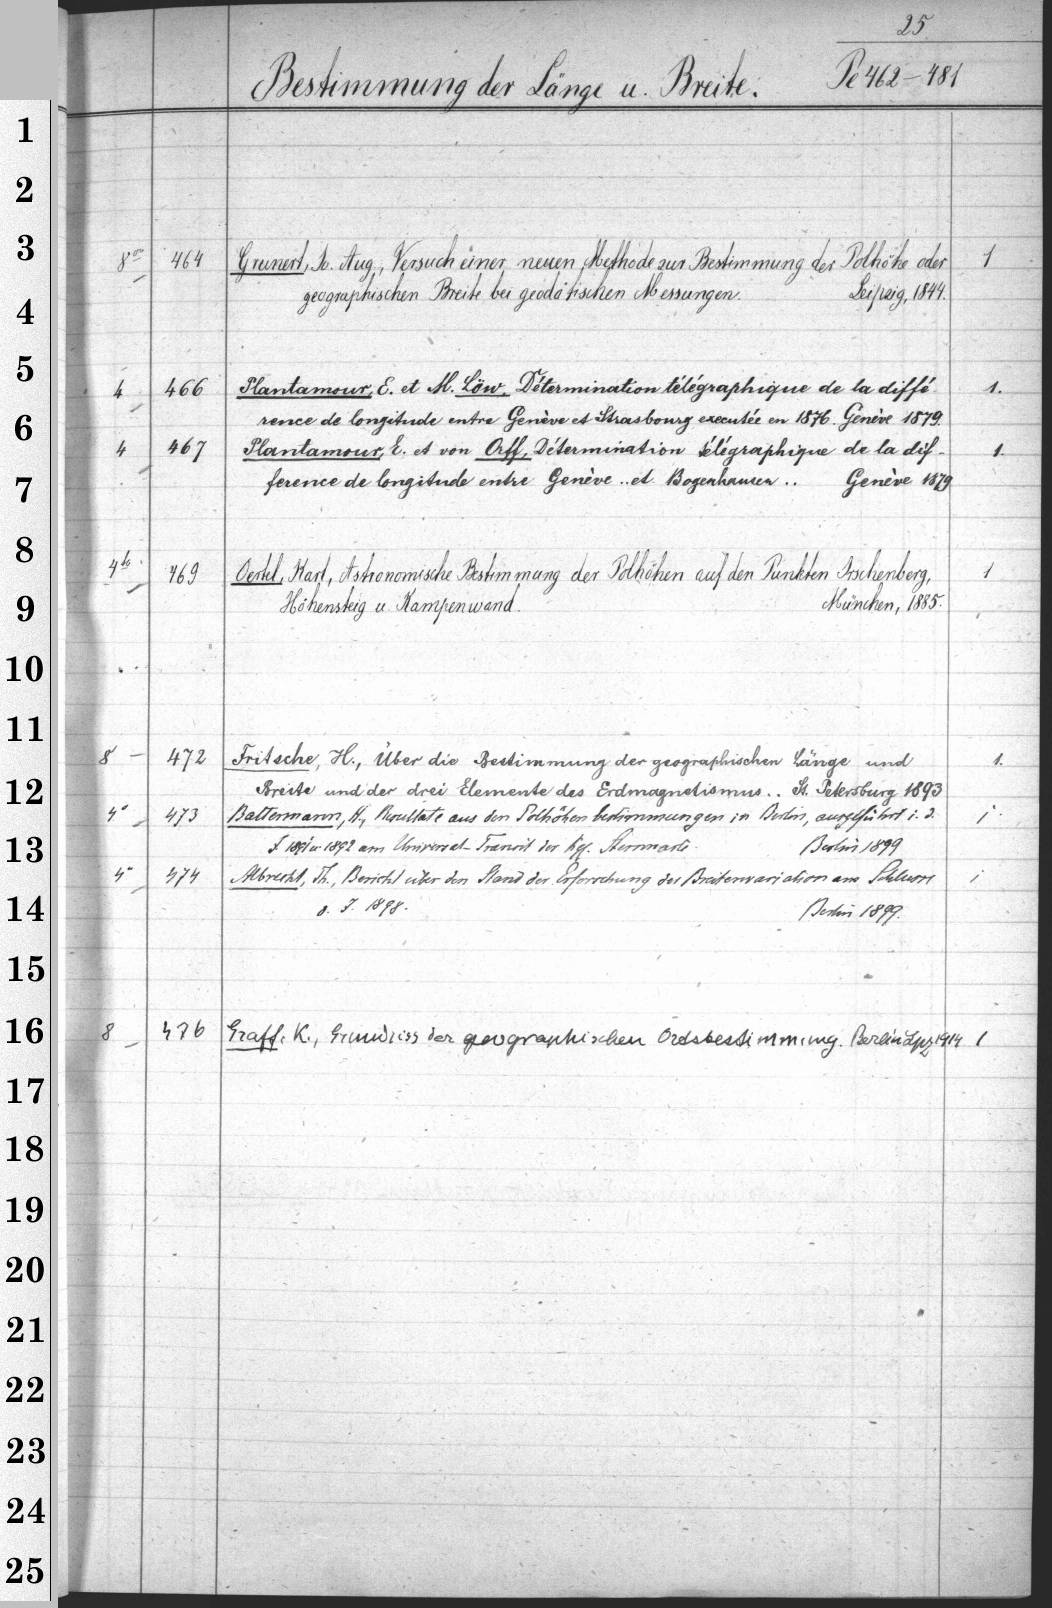 25
Pe 462-481
Bestimmung der Länge u. Breite.
1
2
3
8vo 464 Grunert, Jo. Aug., Versuch einer neuen Methode zur Bestimmung der Polhöhe oder 1
geographischen Breite bei geodätischen Messungen. Leipzig, 1844.
4
5
4 466 Plantamour, E. et M. Löw, Détermination télégraphique de la diffé- 1.
6
rence de longitude entre Genève et Strasbourg executée en 1876. Genève 1879.
4 467 Plantamour, E. et von Orff, Détermination télégraphique de la dif- 1.
7
ference de longitude entre Genève .. et Bogenhausen .. Genève 1879
8
4to 469 Oertel, Karl, Astronomische Bestimmung der Polhöhen auf den Punkten Irschenberg, 1
9
Höhensteig u. Kampenwand. München, 1885.
10
11
8 472 Fritsche, H., Über die Bestimmung der geographischen Länge und 1.
12
Breite und der drei Elemente des Erdmagnetismus .. St. Petersburg 1893
4° 473 Battermann, H., Resultate aus den Polhöhenbestimmungen in Berlin, ausgeführt i. d. 1
13
J. 1891 u 1892 am Universal-Transit der Kgl. Sternwarte. Berlin 1899
4° 474 Albrecht, Th., Bericht über den Stand der Erforschung der Breitenvariation am Schlusse 1
14
d. J. 1898. Berlin 1899.
15
16
8 476 Graff, K., Grundriss der geographischen Ordsbestimmung. Berlin Lpz 1914 1
17
18
19
20
21
22
23
24
25